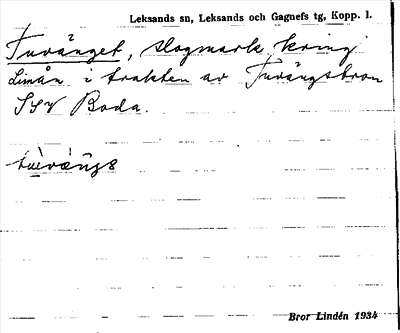 Leksands sn, Leksands och Gagnefs tg, Kopp. l.
Tuvänget, slogmark kring
Limån i trakten av Tuvängsbron
SSV Boda.
Bror Lindén 1934